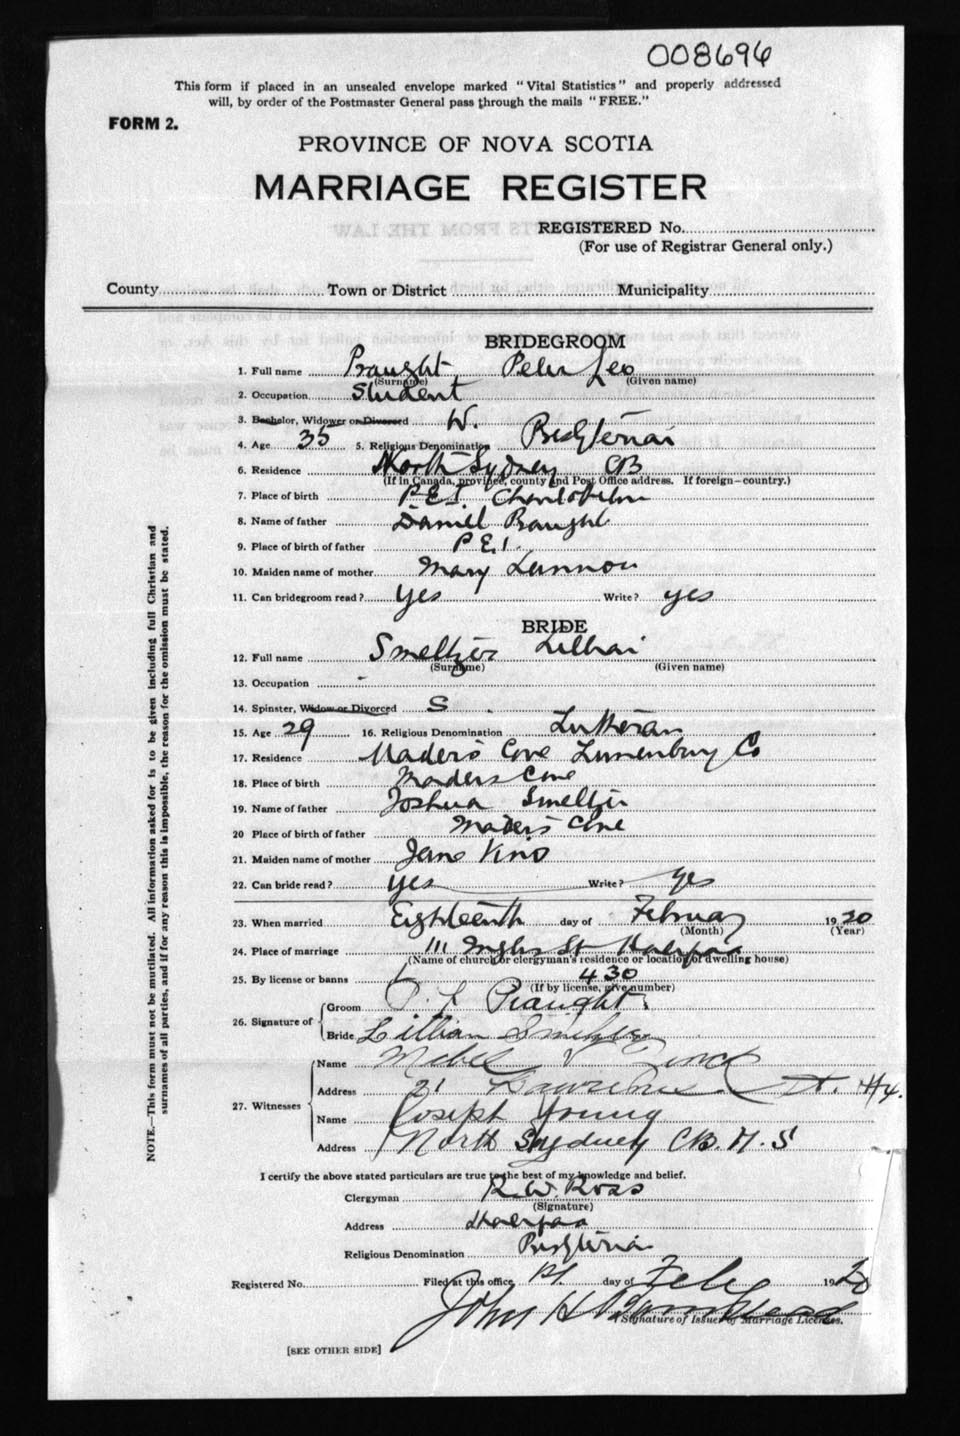 008696
This form if placed in an unsealed envelope marked "Vital Statistics" and properly addressed
will, by order of the Postmaster General pass through the mails "FREE."
FORM 2.
PROVINCE OF NOVA SCOTIA
MARRIAGE REGISTER
REGISTERED No.
(For use of Registrar General only.)
County Town or District Municipality
BRIDEGROOM
1. Full name Praught Peter Leo
(Surname) (Given name)
2. Occupation Student
3. Bachelor, Widower or Divorced W.
4. Age 35 5. Religious Denomination Presbyterian
6. Residence North Sydney CB
(If in Canada, province, county and Post Office address. If foreign—country.)
7. Place of birth P.E.I.
8. Name of father Daniel Praught
9. Place of birth of father P.E.I.
10. Maiden name of mother Mary Lannon
11. Can bridegroom read? Yes Write? yes
BRIDE
12. Full name Smeltzer Lillian
(Surname) (Given name)
13. Occupation -
14. Spinster, Widow or Divorced S.
15. Age 29 16. Religious Denomination Lutheran
17. Residence Maders Cove Lunenburg Co
18. Place of birth Maders Cove
19. Name of father Joshua Smeltzer
20 Place of birth of father Maders Cove
21. Maiden name of mother
22. Can bride read? yes Write? yes
23. When married Eighteenth day of February 1920
(Month) (Year)
24. Place of marriage 111 Inglis St Halifax
(Name of church or clergyman's residence or location of dwelling house)
25. By license or banns L 430
(If by license, give number)
26. Signature of Groom P. L Praught
Bride Lillian Smeltzer
27. Witnesses Name Mabel
Address 21 Lawrence St. Hx.
Name Joseph Young
Address North Sydney C.B. N.S
I certify the above stated particulars are true to the best of my knowledge and belief.
Clergyman R.W. Ross
(Signature)
Address Halifax
Religious Denomination Presbyterian
Registered No. Filed at this office day of Feb 1920
John H
Signature of Issuer of Marriage Licenses.
[SEE OTHER SIDE]
NOTE.—This form must not be mutilated. All information asked for is to be given including full Christian and
surnames of all parties, and if for any reason this is impossible, the reason for the omission must be stated.